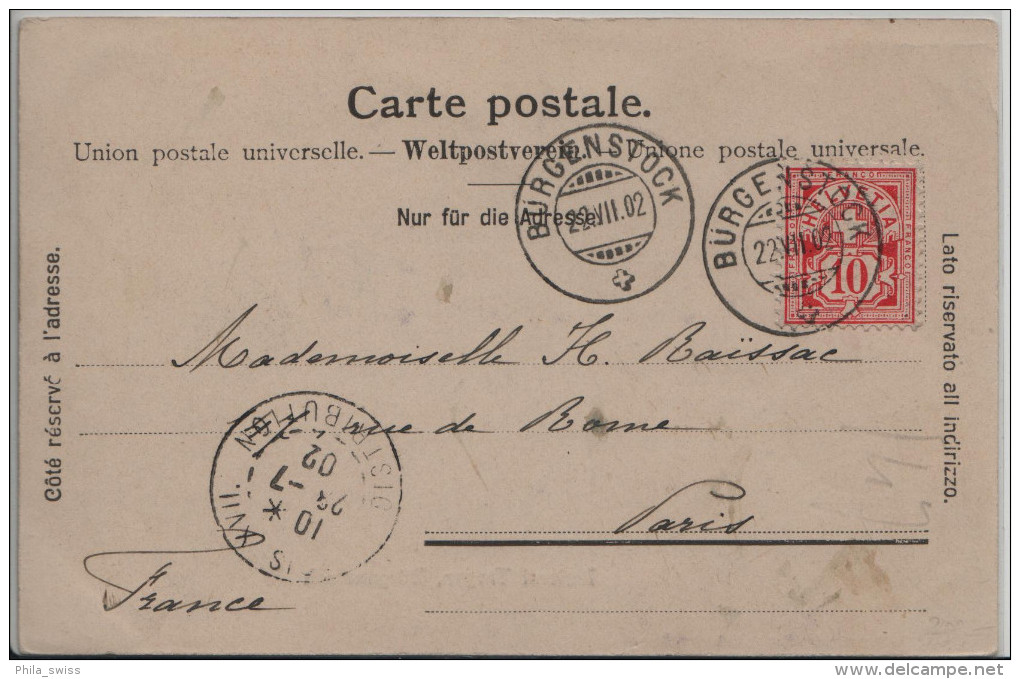 Carte postale.
Union postale universelle. — Weltpostverein. — Unione postale universale.
Nur für die Adresse.
Côté réservé à l'adresse.
Lato riservato all indirizzo.
BÜRGENSTOCK
22.VII.02
BÜRGENSTOCK
22.VII.02
FRANCO
HELVETIA
10
Mademoiselle H. Raïssac
rue de Rome
Paris
France
PARIS XVII.
DISTRIBUTION
10 *
23 -7
02
Phila_swiss
www.delcampe.net